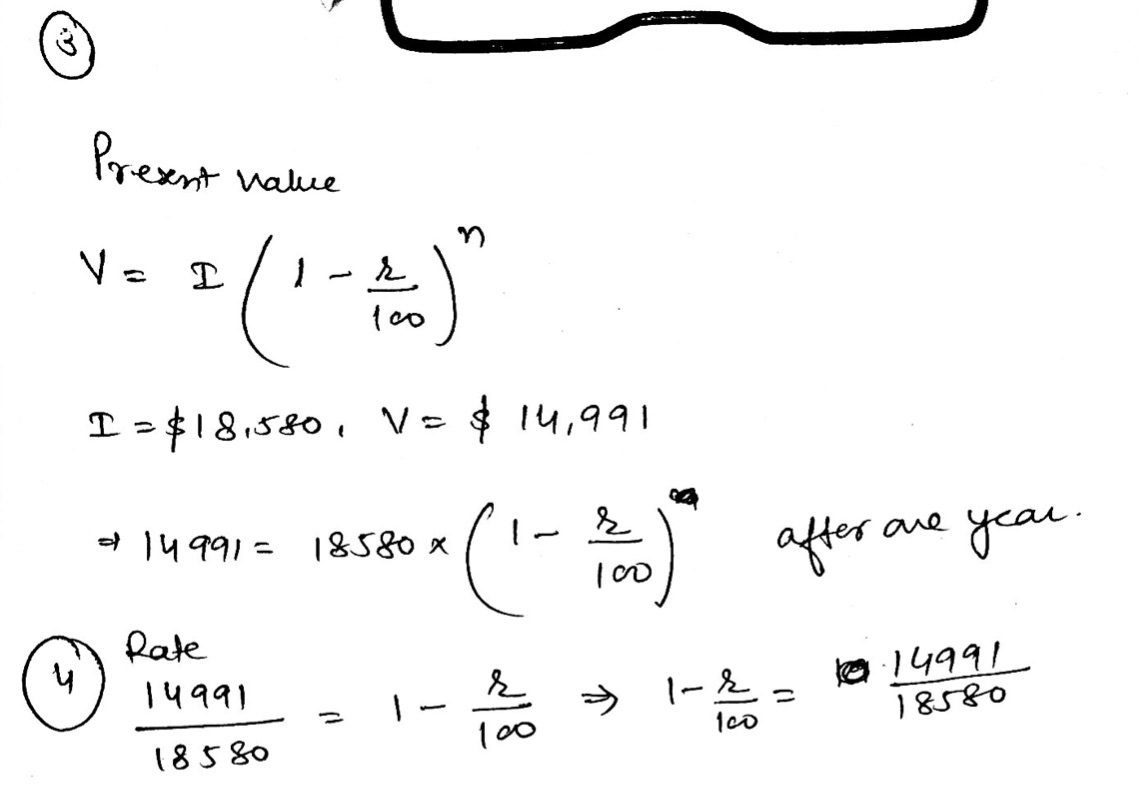 ③
Present value
V = I (1 - r/100)^n
I = $18,580, V = $ 14,991
⇒ 14991 = 18580 × (1 - r/100) after one year.
④ Rate
14991/18580 = 1 - r/100 ⇒ 1 - r/100 = 14991/18580